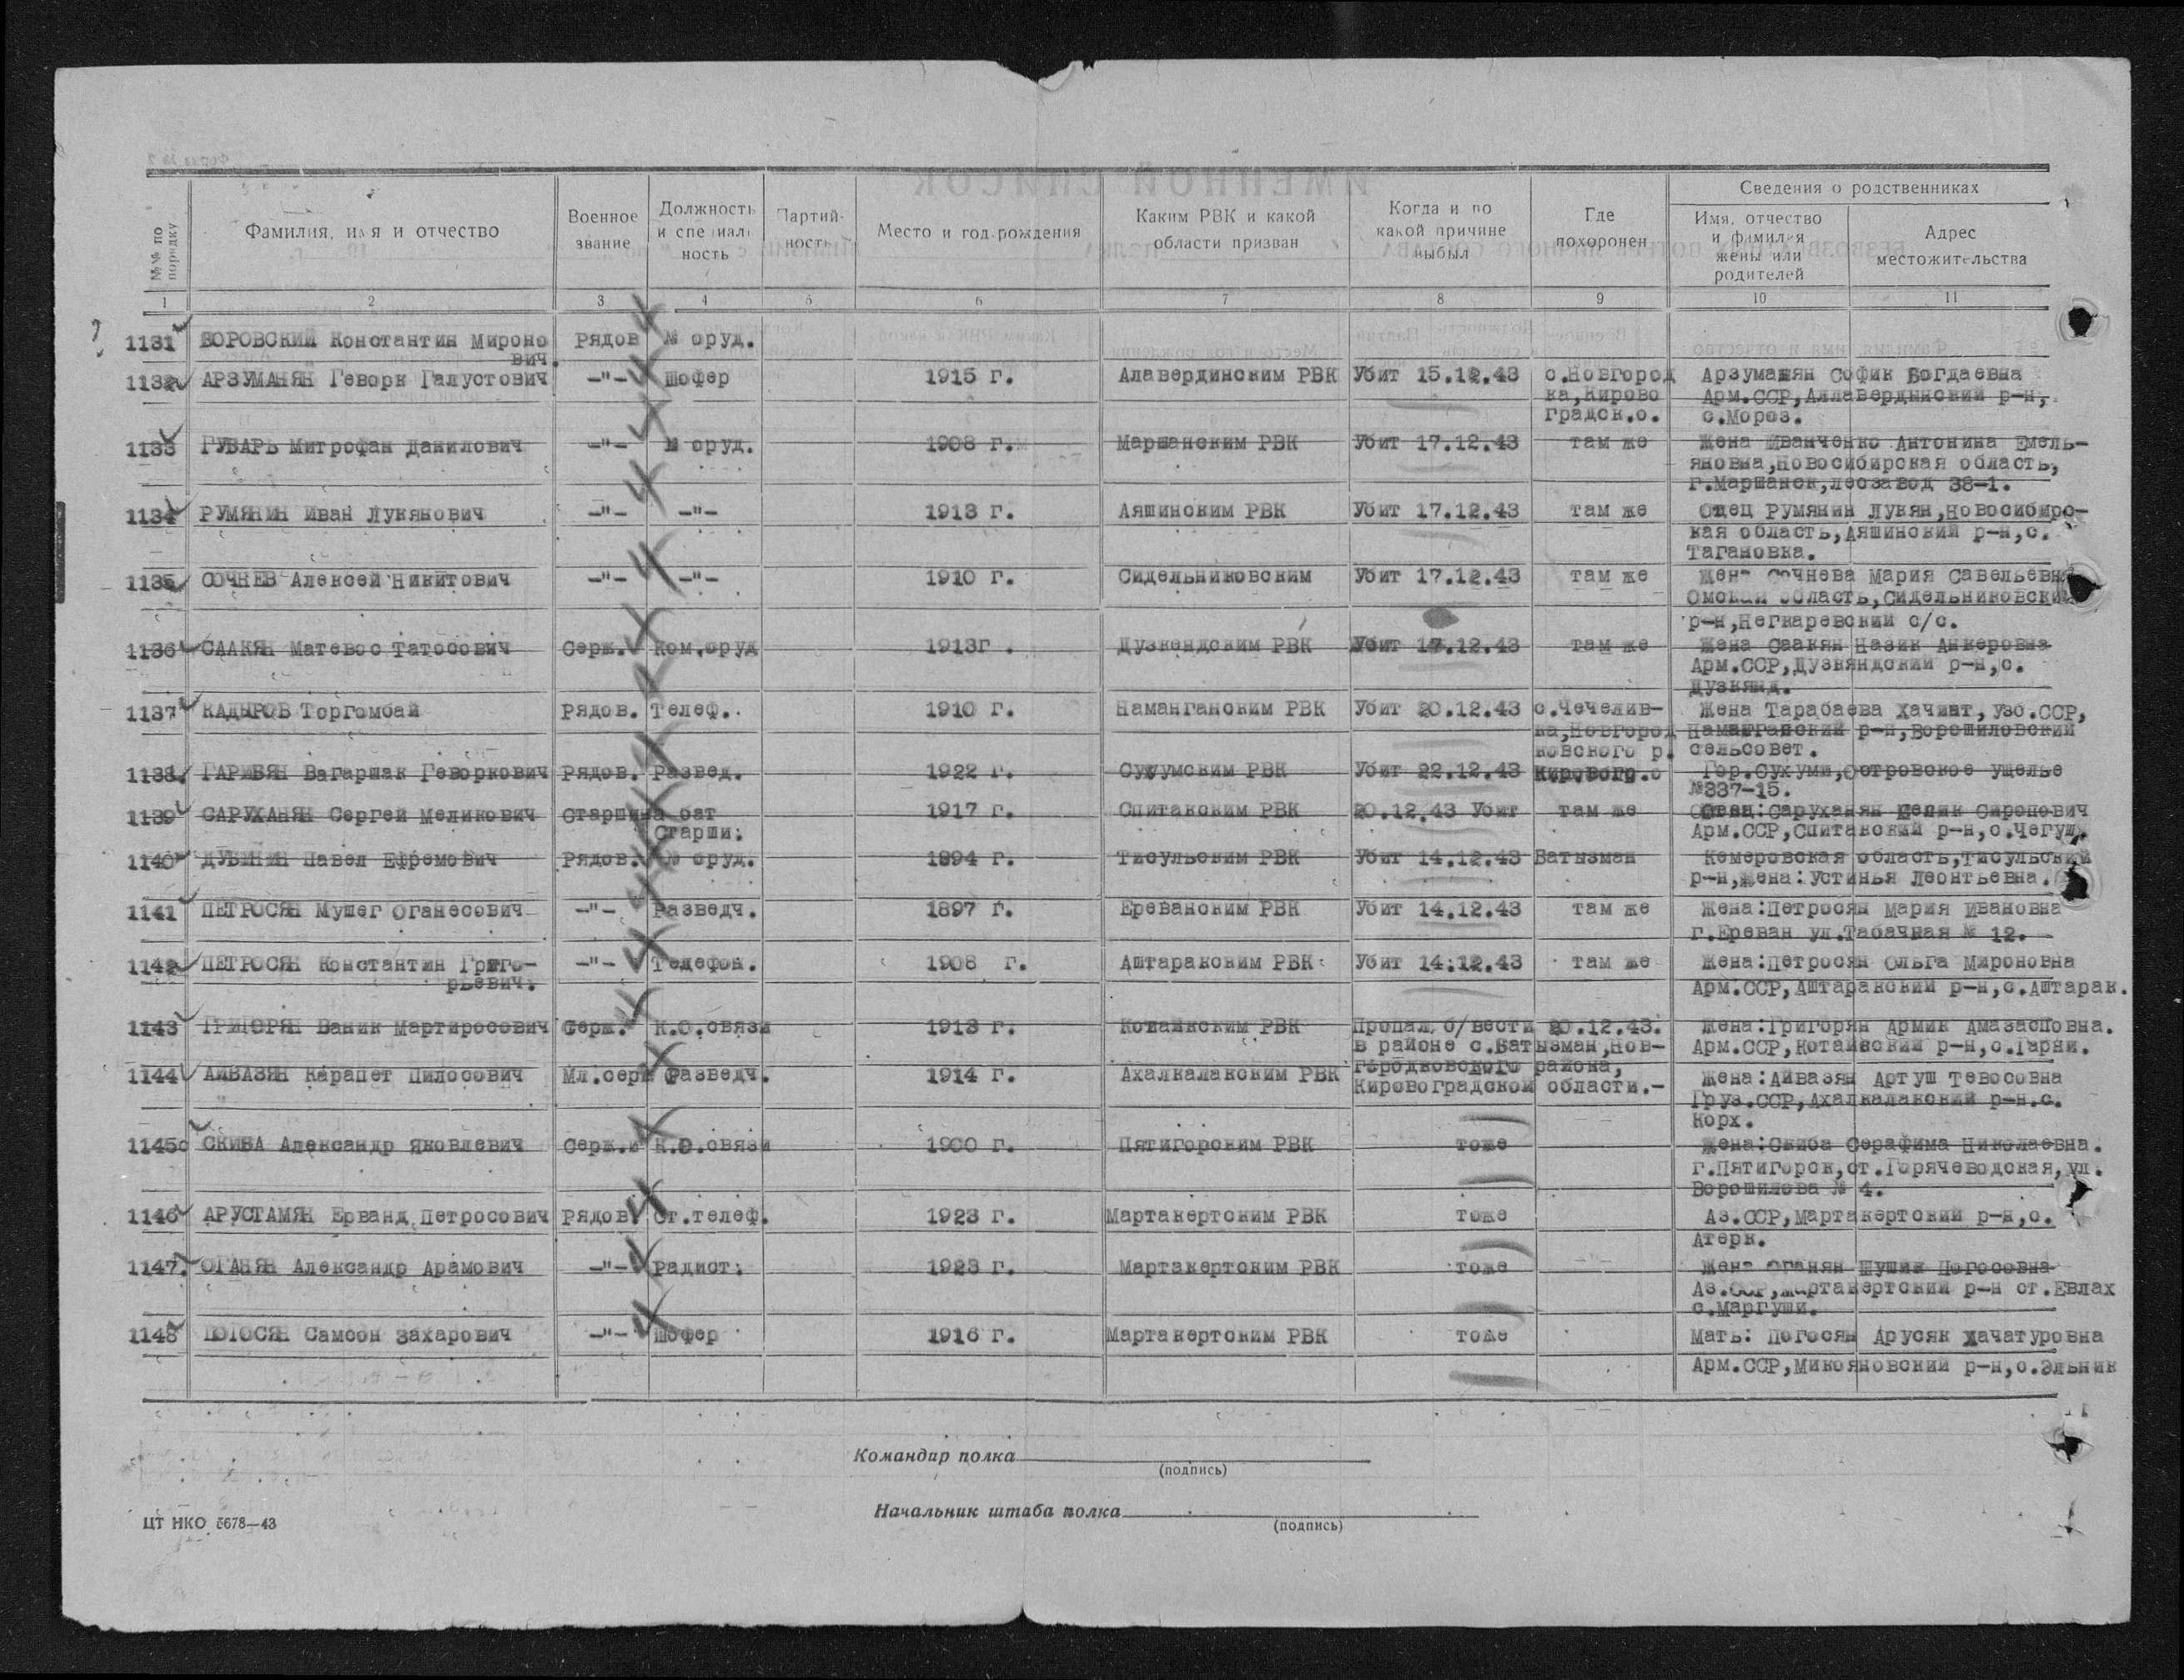 №№ по порядку
Фамилия, имя и отчество
Военное звание
Должность и специальность
Партийность
Место и год рождения
Каким РВК и какой области призван
Когда и по какой причине выбыл
Где похоронен
Сведения о родственниках
Имя, отчество и фамилия жены или родителей
Адрес местожительства
1 2 3 4 5 6 7 8 9 10 11
1131 БОРОВСКИЙ Константин Мироно Рядов № оруд.
вич.
1132 АРЗУМАНЯН Геворк Галустович -"- Шофер 1915 г. Алавердинским РВК Убит 15.12.43 с.Новгород Арзуманян Софик Богдаевна
ка,Кирово Арм.ССР,Аллавердынский р-н,
градск.о. с.Мороз.
1133 ГУБАРЬ Митрофан Данилович -"- № оруд. 1908 г. Маршанским РВК Убит 17.12.43 там же Жена Иванченко Антонина Емель-
яновна,Новосибирская область,
г.Маршанск,лесзавод 38-1.
1134 РУМЯНИН Иван Лукянович -"- -"- 1913 г. Аяшинским РВК Убит 17.12.43 там же Отец Румянин Лукян,Новосибирс-
кая область,Аяшинский р-н,с.
Тагановка.
1135 СОЧНЕВ Алексей Никитович -"- -"- 1910 г. Сидельниковским Убит 17.12.43 там же Жена Сочнева Мария Савельевна
Омская область,Сидельниковский
р-н,Негкаревский с/с.
1136 СААКЯН Матевос Татосович Серж. Ком.оруд 1913г . Дузкендским РВК Убит 17.12.43 там же Жена Саакян Назик Анкеровна
Арм.ССР,Дузкяндский р-н,с.
Дузкянд.
1137 КАДЫРОВ Торгомбай Рядов. Телеф. 1910 г. Наманганским РВК Убит 20.12.43 с.Чечелив- Жена Тарабаева Хачиат,Узб.ССР,
ка,Новгород Намангайский р-н,Ворошиловский
ковского р. сельсовет.
1138. ГАРИБЯН Вагаршак Геворкович Рядов. Развед. 1922 г. Сухумским РВК Убит 22.12.43 Кировогр.о Гор.Сухуми,Островское ущелье
№337-15.
1139 САРУХАНЯН Сергей Меликович Старшина бат 1917 г. Спитакским РВК 20.12.43 Убит там же Отец:Саруханян Мелик Сиропович
Старши. Арм.ССР,Спитакский р-н,с.Чегуш.
1140 ДУБИНИН Павел Ефремович Рядов. № оруд. 1894 г. Тисульским РВК Убит 14.12.43 Батызман Кемеровская область,Тисульский
р-н,Жена:Устинья Леонтьевна.
1141 ПЕТРОСЯН Мушег Оганесович -"- Разведч. 1897 г. Ереванским РВК Убит 14.12.43 там же Жена:Петросян Мария Ивановна
г.Ереван ул.Табачная № 12.
1142 ПЕТРОСЯН Константин Григо- -"- Телефон. 1908 г. Аштаракским РВК Убит 14.12.43 там же Жена:Петросян Ольга Мироновна
рьевич. Арм.ССР,Аштаракский р-н,с.Аштарак.
1143 ГРИГОРЯН Ваник Мартиросович Серж. К.О.связи 1913 г. Котайкским РВК Пропал б/вести 20.12.43. Жена:Григорян Армик Амазасповна.
в районе с.Батызман,Нов- Арм.ССР,Котайкский р-н,с.Гарни.
1144 АЙВАЗЯН Карапет Пилосович Мл.серж Разведч. 1914 г. Ахалкалакским РВК городковского района, Жена:Айвазян Артуш Тевосовна
Кировоградской области.- Груз.ССР,Ахалкалакский р-н.с.
Корх.
1145 СКИБА Александр Яковлевич Серж. К.О.связи 1900 г. Пятигорским РВК тоже Жена:Скиба Серафима Николаевна.
г.Пятигорск,ст.Горячеводская,ул.
Ворошилова № 4.
1146 АРУСТАМЯН Ерванд Петросович Рядов. Ст.телеф. 1923 г. Мартакертским РВК тоже Аз.ССР,Мартакертский р-н,с.
Атерк.
1147. ОГАНЯН Александр Арамович -"- Радист. 1923 г. Мартакертским РВК тоже Жена Оганян Шушик Погосовна
Аз.ССР,Мартакертский р-н ст.Евлах
с.Маргуши.
1148 ПОГОСЯН Самсон Захарович -"- Шофер 1916 г. Мартакертским РВК тоже Мать: Погосян Арусяк Хачатуровна
Арм.ССР,Микояновский р-н,с.Эльпик
Командир полка
(подпись)
Начальник штаба полка
(подпись)
ЦТ НКО 5678—43